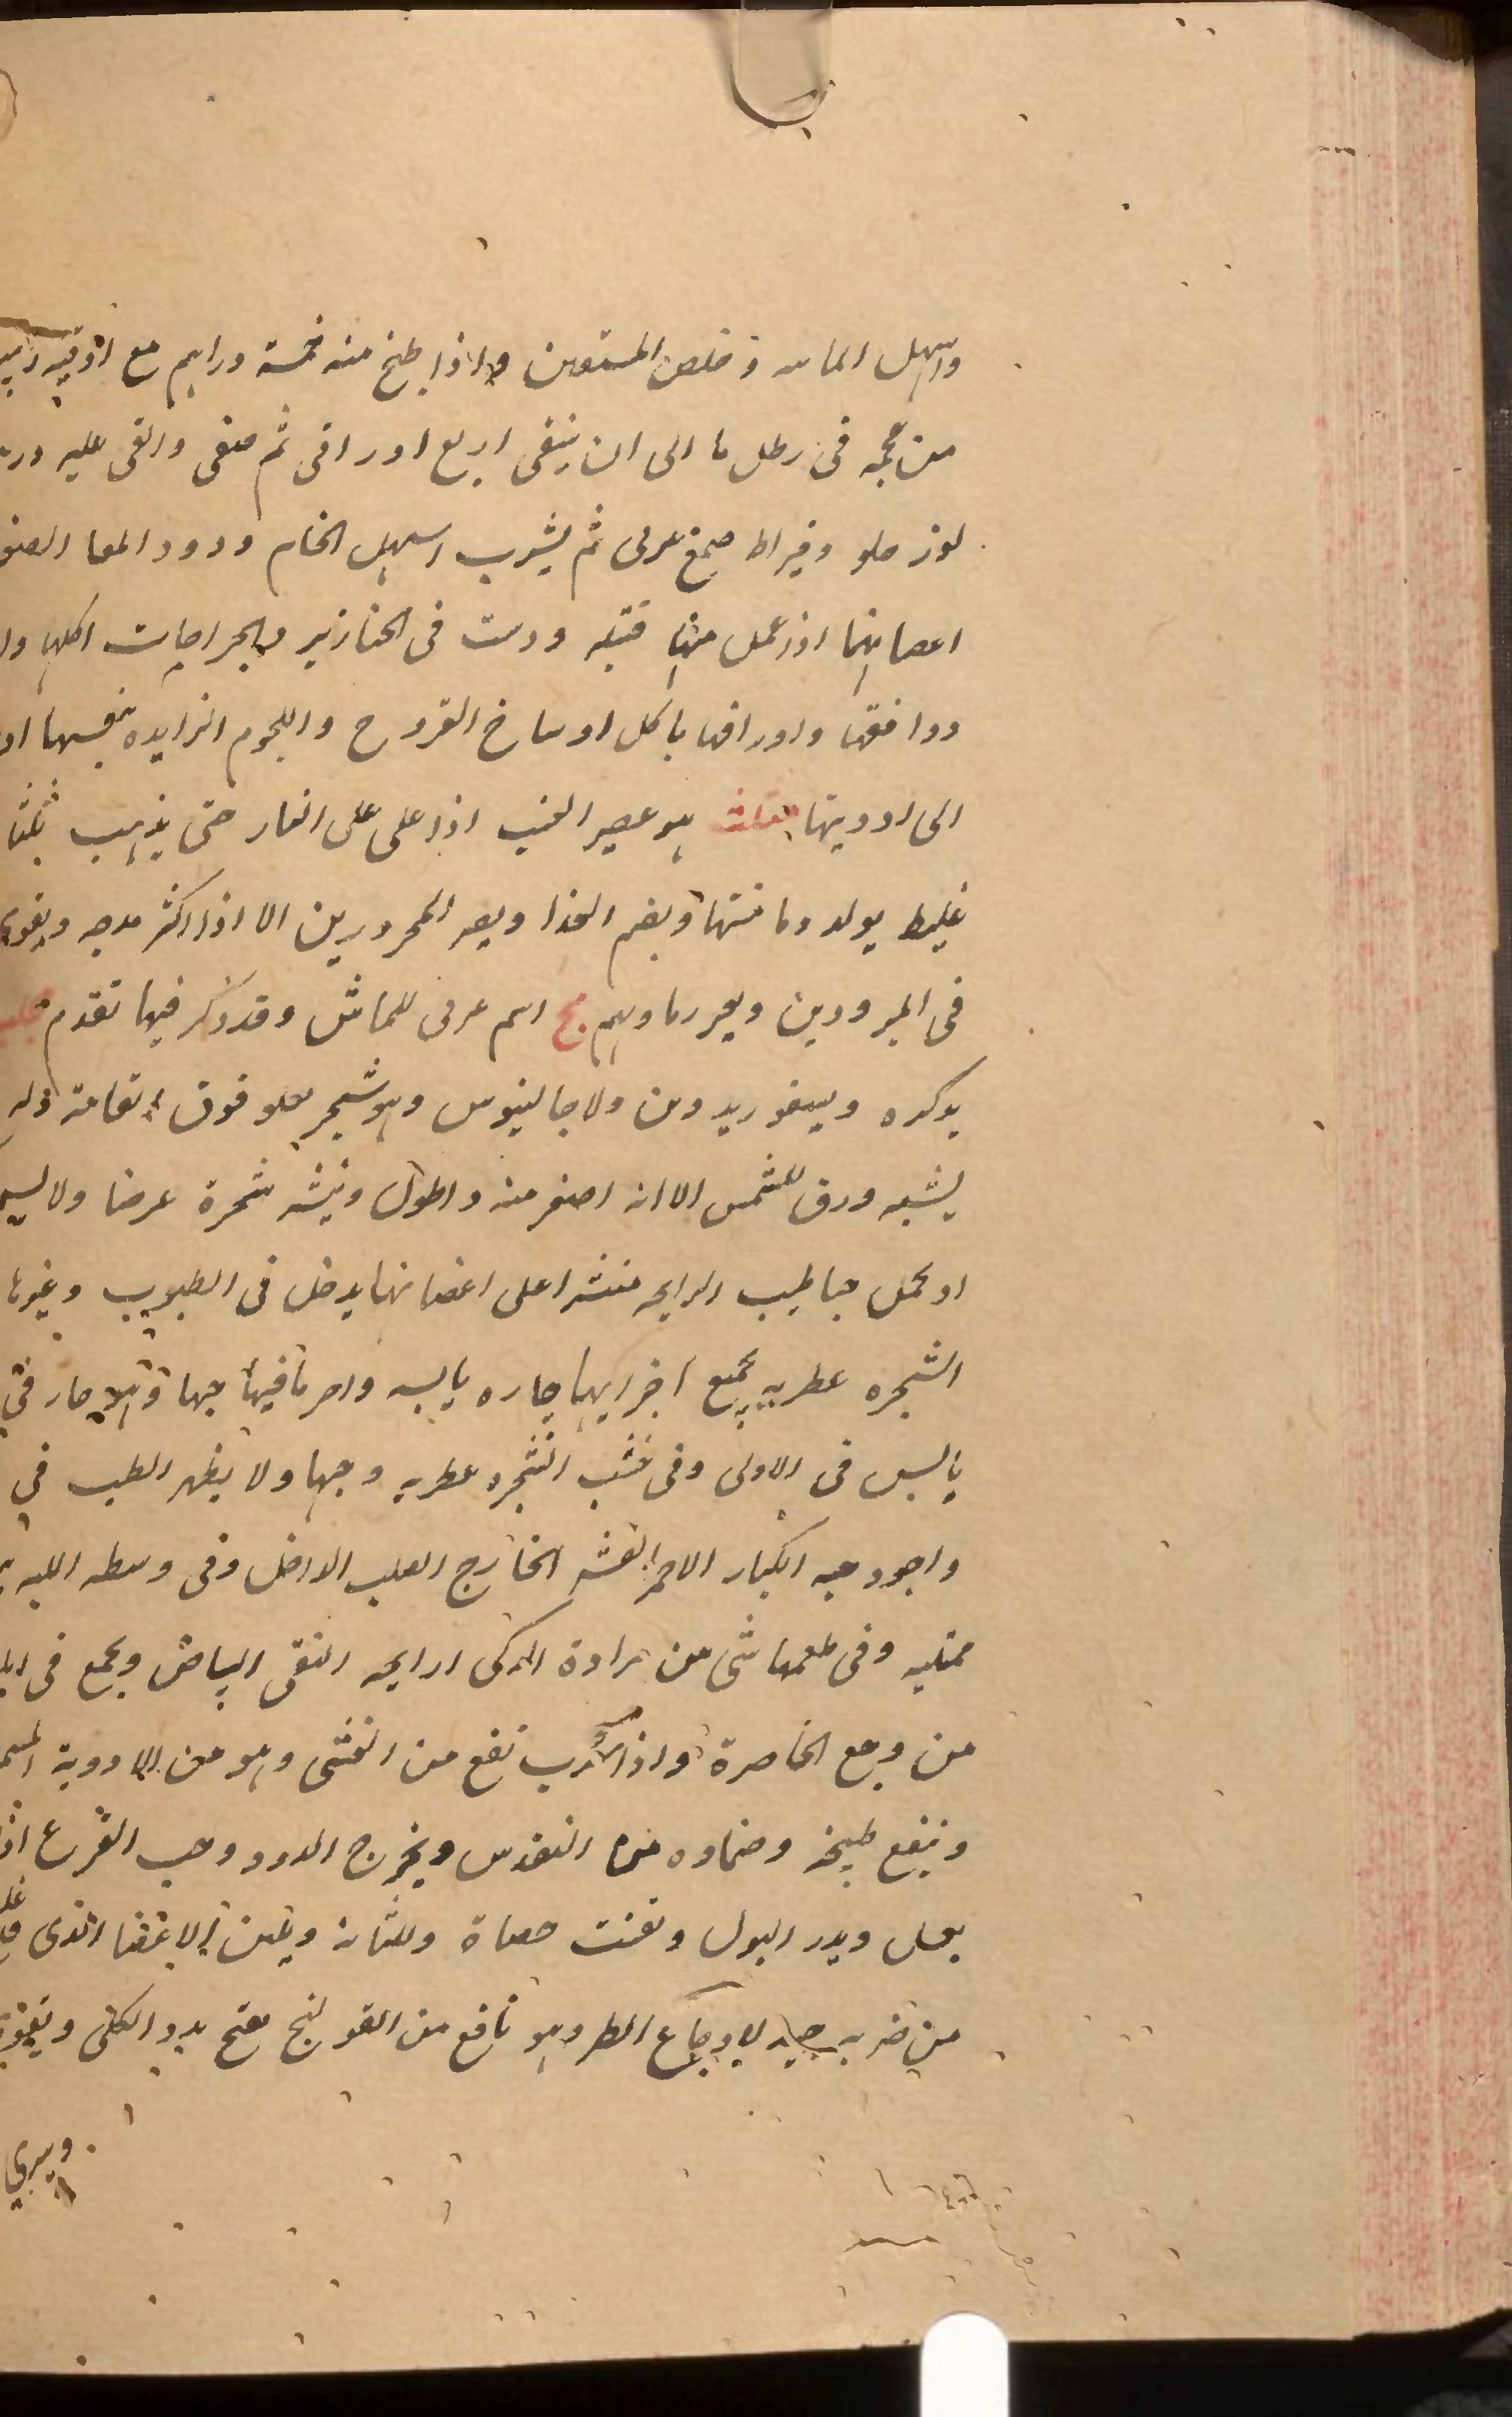 واسهل الماىه وخلص المستعىن واذا طبخ منه خمسة دراهم مع اوقيه زبيب
من عجمه فى رطل ما الى ان يبقى اربع اوراقى ثم صفى والقى عليه
لوز حلو وقيراط صمغ عربى ثم يشرب اسهل الخام ودود المعا
اعصانهما اذا عمل منها فتيله ودست فى الخنازير والجراحات اكلها
ووافقها واوراقها ياكل اوساخ القروح واللحوم الزايده بنفسها او
الى ادويتها مثلث هو عصير العنب اذا على على النار حتى يذهب ثلثا
غليظ يولد دما متينا ويهضم الغذا ويضر المحرورين الا اذا اكثر مزجه ويقوى
فى المبرودين ويعر رما وىهم مج اسم عربى للماش وقد ذكر فيما تقدم محلب
يذكره ديسقوريدوس ولا جالينوس وهو شجر يعلو فوق القامة
يشبه ورق المشمش الا انه اصغر منه واطول وينشر شجرة عرضا ولا
او يحمل حبا طيب الرايحه منتشرا على اغصانها يدخل فى الطيوب وغيرها
الشجره عطريه بجميع اجزايها حاره يابسه واحر ما فيها حبها وهو حار فى
يابس فى الاولى وفى خشب الشجره عطريه وحبها ولا يظهر الطيب فى
واجود حبه الكبار الاحمر القشر الخارج الصلب الداخل وفى وسطه اللبه
ممتليه وفى طعمها شى من مرارة الذكى الرايحه النقى البياض ويجمع فى
من وجع الخاصرة واذا شرب نفع من الغشى وهو من الادوية
وينفع طبيخه وضماده من النقرس ويخرج الدود وحب القرع اذا
بعسل ويدر البول وتفتت حصاة والمثانة ويلين الاعضا الذى
من ضربه جيد لاوجاع الظهر وهو نافع من القولنج يفتح سدد الكلى ويقوى
ويبرى